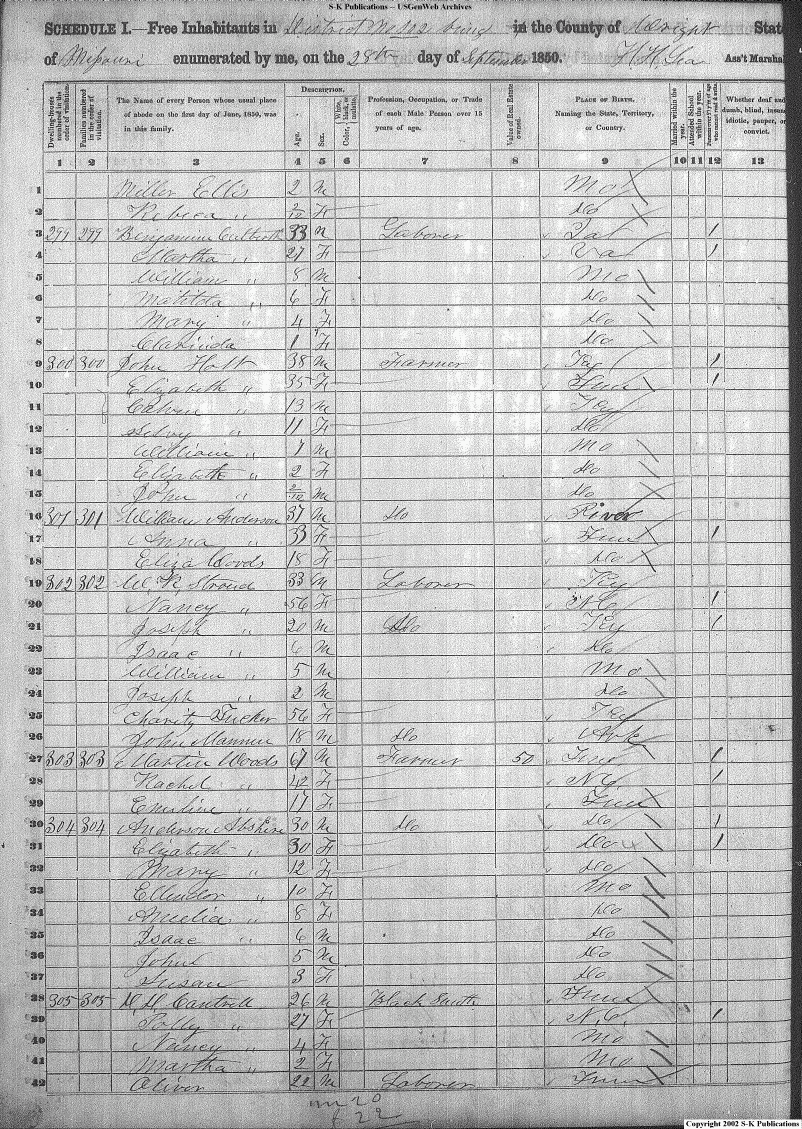 S-K Publications — USGenWeb Archives
SCHEDULE I.—Free Inhabitants in District No 112 being in the County of Wright State
of Missouri enumerated by me, on the 28th day of September 1850. Ass't Marshal
Dwelling-houses numbered in the order of visitation.
Families numbered in the order of visitation.
The Name of every Person whose usual place of abode on the first day of June, 1850, was in this family.
DESCRIPTION.
Age.
Sex.
Color, White, black, or mulatto.
Profession, Occupation, or Trade of each Male Person over 15 years of age.
Value of Real Estate owned.
PLACE OF BIRTH. Naming the State, Territory, or Country.
Married within the year.
Attended School within the year.
Whether deaf and dumb, blind, insane, idiotic, pauper, or convict.
1 2 3 4 5 6 7 8 9 10 11 12 13
1 Miller Ellis 2 M Mo
2 Rebeca " 2/12 F Do
3 299 299 Benjamine 33 M Laborer 1
4 Martha " 27 F Va 1
5 William " 8 M Mo
6 Matilda " 6 F Do
7 Mary " 4 F Do
8 Clarinda 1 F Do
9 300 300 John Holt 38 M Farmer Ky 1
10 Elizabeth " 35 F Tenn 1
11 Calvin " 13 M Ky
12 " 11 F Do
13 William " 7 M Mo
14 Elizabeth " 2 F Do
15 John " 2/12 M Do
16 301 301 William Anderson 37 M Do River
17 Anna " 33 F Tenn 1
18 Eliza Woods 18 F Do
19 302 302 W. R. Stroud 33 M Laborer Ky
20 Nancy " 56 F N.C. 1
21 Joseph " 20 M Do Ky 1
22 Isaac " 6 M Do
23 William " 5 M Mo
24 Joseph " 2 M Do
25 Charity Tucker 56 F Ky
26 John 18 M Do Ark
27 303 303 Martin Woods 67 M Farmer 50 Tenn 1
28 Rachel " 42 F 1
29 Emiline " 17 F Tenn
30 304 304 Anderson Abshire 30 M Do Do 1
31 Elizabeth " 30 F Do 1
32 Mary " 12 F Do
33 Ellender " 10 F Mo
34 Amelia " 8 F Do
35 Isaac " 6 M Do
36 John 5 M Do
37 Susan 3 F Do
38 305 305 Cantrell 26 M Black Smith Tenn
39 Polly " 27 F N.C. 1
40 Nancy " 4 F Mo
41 Martha " 2 F Mo
42 Oliver 22 M Laborer Tenn
m 20
f 22
Copyright 2002 S-K Publications